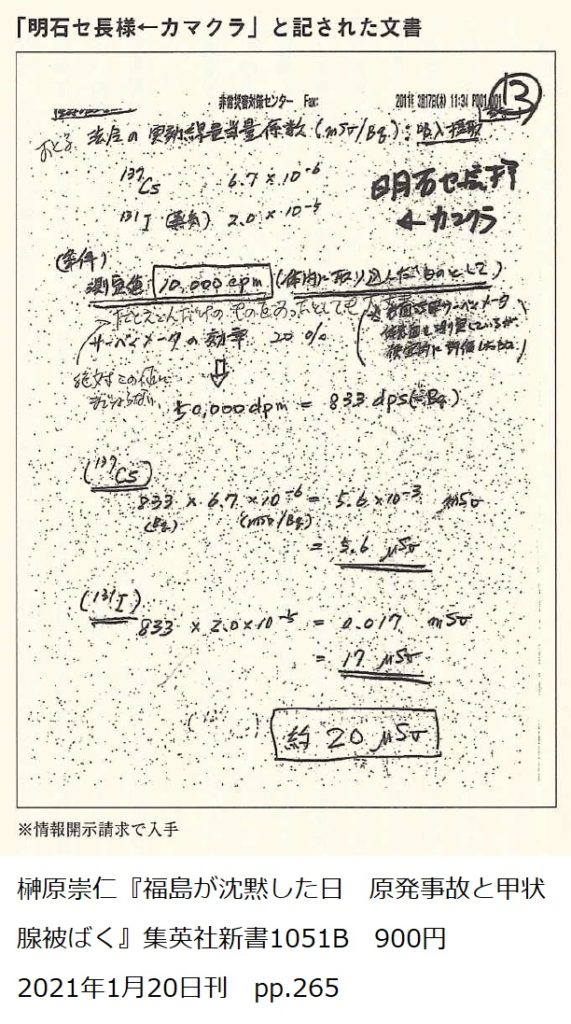 「明石セ長様←カマクラ」と記された文書
非常災害対策センター Fax:
2011年 3月17日(木) 11:34 P001/001
13
おとな
法令の実効線量当量係数(mSv/Bq): 吸入摂取
137Cs 6.7×10-6
131I (蒸気) 2.0×10-5
明石セ長様
←カマクラ
(条件)
測定値: 10,000cpm (体内に取り込んだものとして)
サーベイメータの効率 20%
絶対この値に
⇩
50,000dpm = 833 dps(=Bq)
(137Cs)
833 × 6.7×10-6 = 5.6×10-3 mSv
(Bq) (mSv/Bq)
= 5.6 μSv
(131I)
833 × 2.0×10-5 = 0.017 mSv
= 17 μSv
約 20 μSv
※情報開示請求で入手
榊原崇仁『福島が沈黙した日　原発事故と甲状
腺被ばく』集英社新書1051B　900円
2021年1月20日刊　pp.265